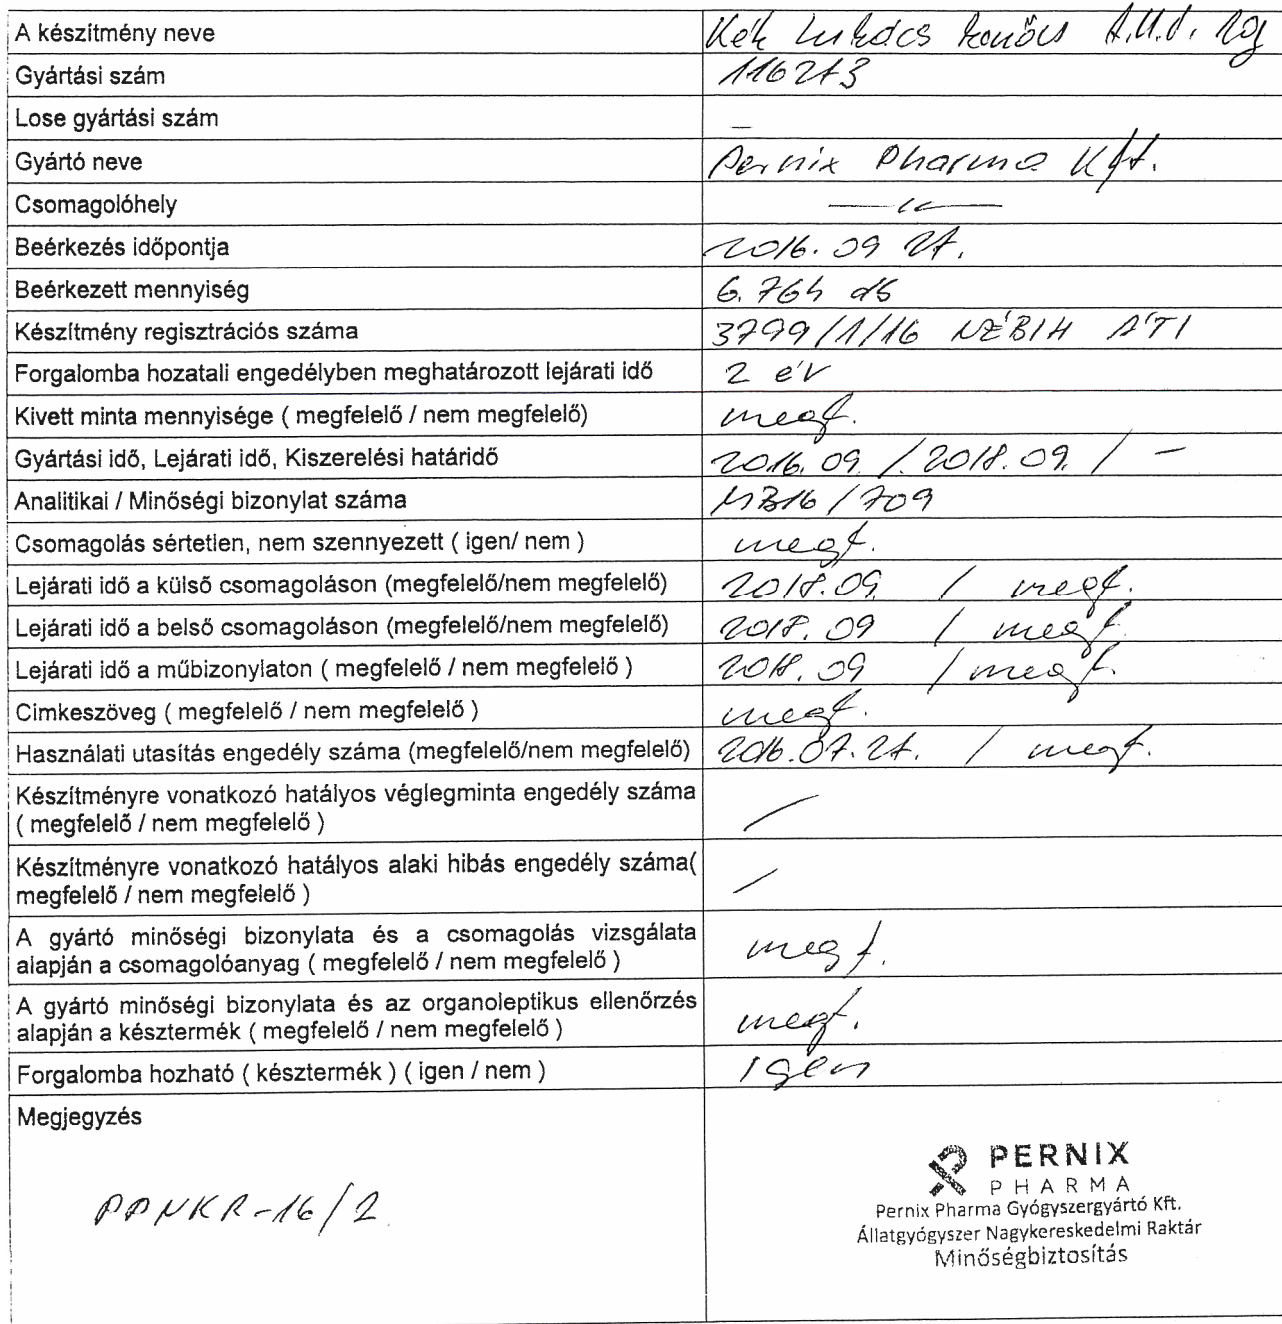 A készítmény neve Kék Lukács kenőcs A.U.V. 20g
Gyártási szám 116273
Lose gyártási szám –
Gyártó neve Pernix Pharma Kft.
Csomagolóhely —〃—
Beérkezés időpontja 2016. 09 27.
Beérkezett mennyiség 6.764 db
Készítmény regisztrációs száma 3799/1/16 NÉBIH ÁTI
Forgalomba hozatali engedélyben meghatározott lejárati idő 2 év
Kivett minta mennyisége ( megfelelő / nem megfelelő) megf.
Gyártási idő, Lejárati idő, Kiszerelési határidő 2016. 09. / 2018. 09. / –
Analitikai / Minőségi bizonylat száma MB16/709
Csomagolás sértetlen, nem szennyezett ( igen/ nem ) megf.
Lejárati idő a külső csomagoláson (megfelelő/nem megfelelő) 2018.09 / megf.
Lejárati idő a belső csomagoláson (megfelelő/nem megfelelő) 2018. 09 / megf.
Lejárati idő a műbizonylaton ( megfelelő / nem megfelelő ) 2018. 09 / megf.
Cimkeszöveg ( megfelelő / nem megfelelő ) megf.
Használati utasítás engedély száma (megfelelő/nem megfelelő) 2016.07.27. / megf.
Készítményre vonatkozó hatályos véglegminta engedély száma
( megfelelő / nem megfelelő ) /
Készítményre vonatkozó hatályos alaki hibás engedély száma(
megfelelő / nem megfelelő ) /
A gyártó minőségi bizonylata és a csomagolás vizsgálata
alapján a csomagolóanyag ( megfelelő / nem megfelelő ) megf.
A gyártó minőségi bizonylata és az organoleptikus ellenőrzés
alapján a késztermék ( megfelelő / nem megfelelő ) megf.
Forgalomba hozható ( késztermék ) ( igen / nem ) Igen
Megjegyzés
PPNKR-16/2
PERNIX
PHARMA
Pernix Pharma Gyógyszergyártó Kft.
Állatgyógyszer Nagykereskedelmi Raktár
Minőségbiztosítás